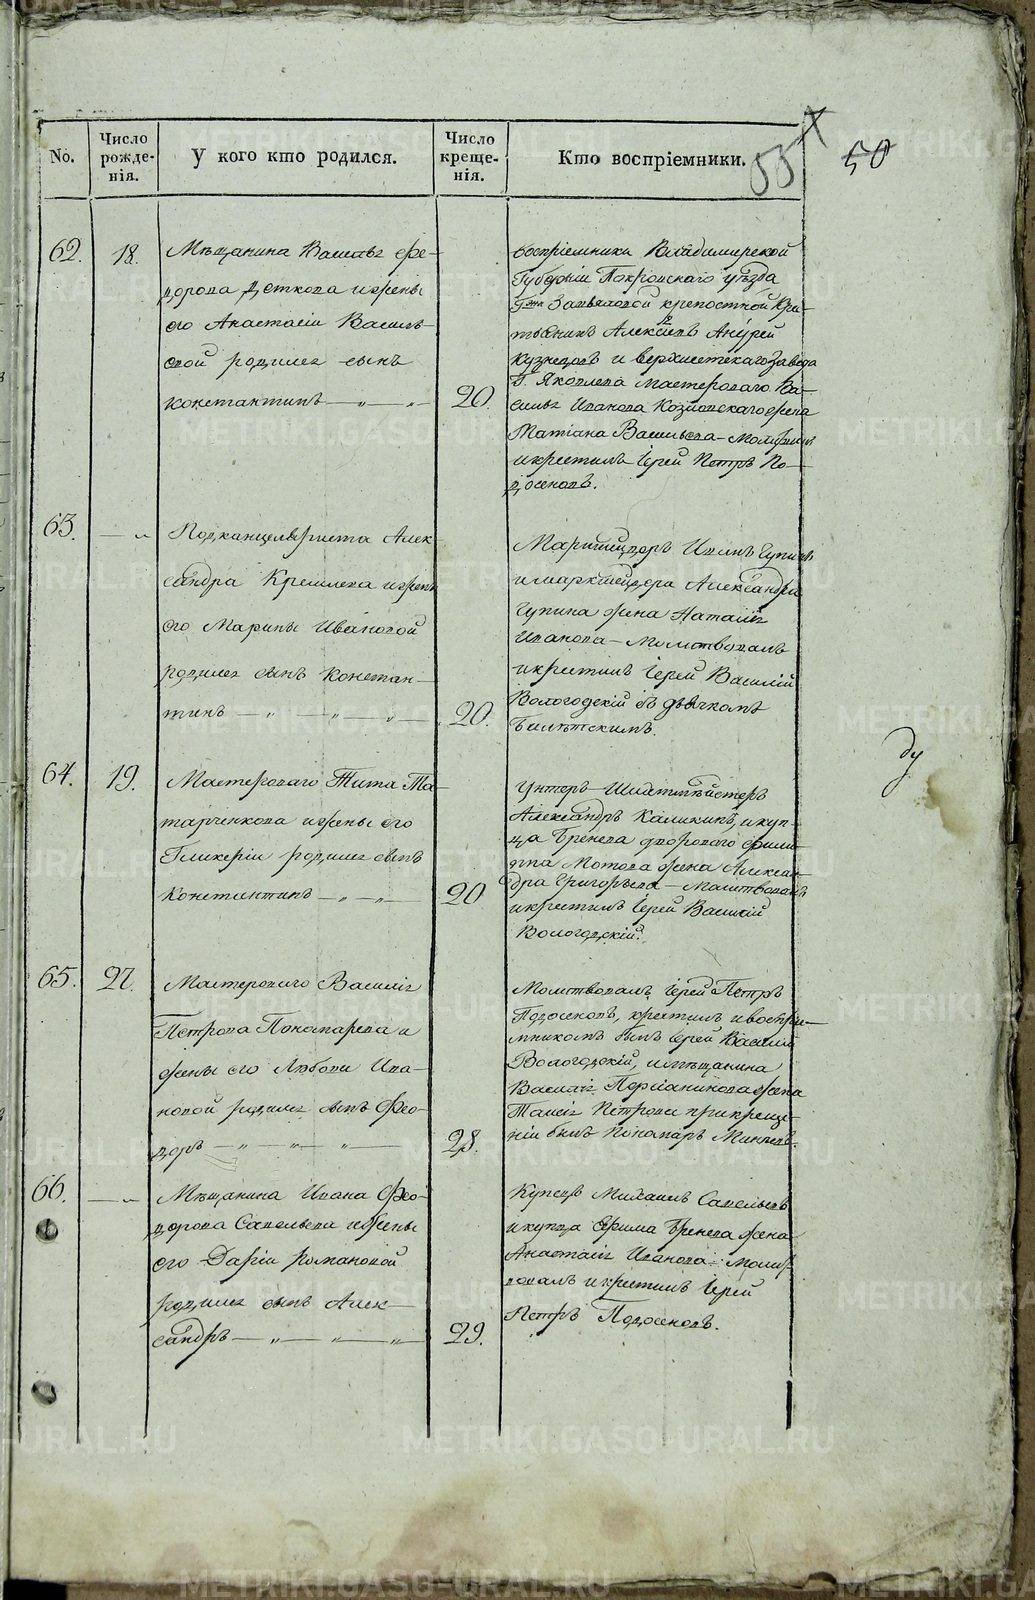 No.
Число рожде-нія.
У кого кто родился.
Число креще-нія.
Кто воспріемники.
55
50
62.
18.
Мѣщанина Василья Ѳе-
дорова Деткова и жены
его Анастасіи Василь-
евой родился сынъ
Константинъ
20.
воспріемники Владимирской
Губерніи Покровскаго уѣзда
крепостной Кре-
Андрей
Кузнецовъ и верхисетскаго завода
Яковлева мастероваго Ва-
силья Иванова Козловскаго жена
Татіана Васильева – Молитвов
и крестилъ Іерей Петръ По-
досеновъ.
63.
Подканцеляриста Алек-
сандра Кремлева и жены
его Марины Ивановой
родился сынъ Констан-
тинъ
20.
Маркшейдеръ Иванъ
и маркшейдера Александра
жена Наталія
Иванова – Молитвовалъ
и крестилъ Іерей Василій
Вологодскій съ дьячкомъ
64.
19.
Мастероваго Тита Та-
тарченкова и жены его
Гликеріи родился сынъ
Константинъ
20
Унтеръ Шихтмейстеръ
Александръ Каликинъ, и куп-
ца двороваго Фили-
ппа Мотова жена Алексан-
дра Григорьева – Молитвовалъ
и крестилъ Іерей Василій
Вологодскій.
65.
27.
Мастероваго Василія
Петрова Пономарева и
жены его Любови Ива-
новой родился сынъ Фео-
доръ
28.
Молитвовалъ Іерей Петръ
Подосеновъ, крестилъ и воспріе-
мникомъ былъ Іерей Василій
Вологодскій, и мѣщанина
Василія жена
Таисія Петрова при креще-
ніи былъ Пономарь
66.
Мѣщанина Ивана Фео-
дорова Савельева и жены
его Даріи Романовой
родился сынъ Алек-
сандръ
29.
Купецъ Михаилъ Савельевъ
и купца Ефима жена
Анастасія Иванова. Молит-
вовалъ и крестилъ Іерей
Петръ Подосеновъ.
METRIKI.GASO-URAL.RU